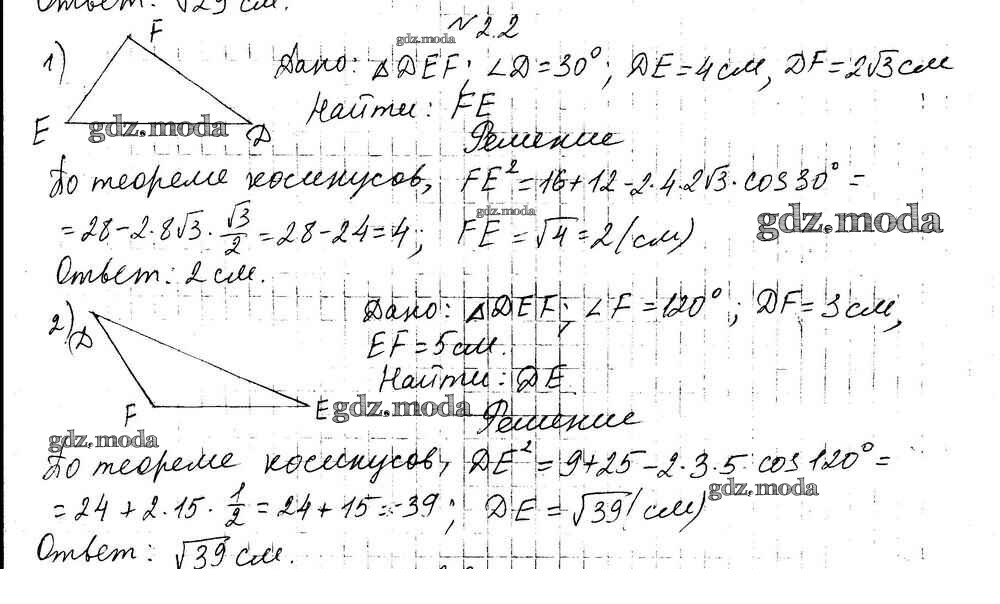 Ответ: √29 см.
№2.2
1) F
Дано: △DEF; ∠D=30°; DE=4 см, DF=2√3 см
gdz.moda
Найти: FE
E gdz.moda D
Решение
По теореме косинусов, FE²=16+12-2·4·2√3·cos30°=
gdz.moda
gdz.moda
=28-2·8√3·√3/2=28-24=4; FE=√4=2(см)
Ответ: 2 см.
2) D
Дано: △DEF; ∠F=120°; DF=3 см,
EF=5 см.
Найти: DE
F E gdz.moda
Решение
gdz.moda
По теореме косинусов, DE²=9+25-2·3·5 cos120°=
gdz.moda
=24+2·15·1/2=24+15=39; DE=√39(см)
Ответ: √39 см.